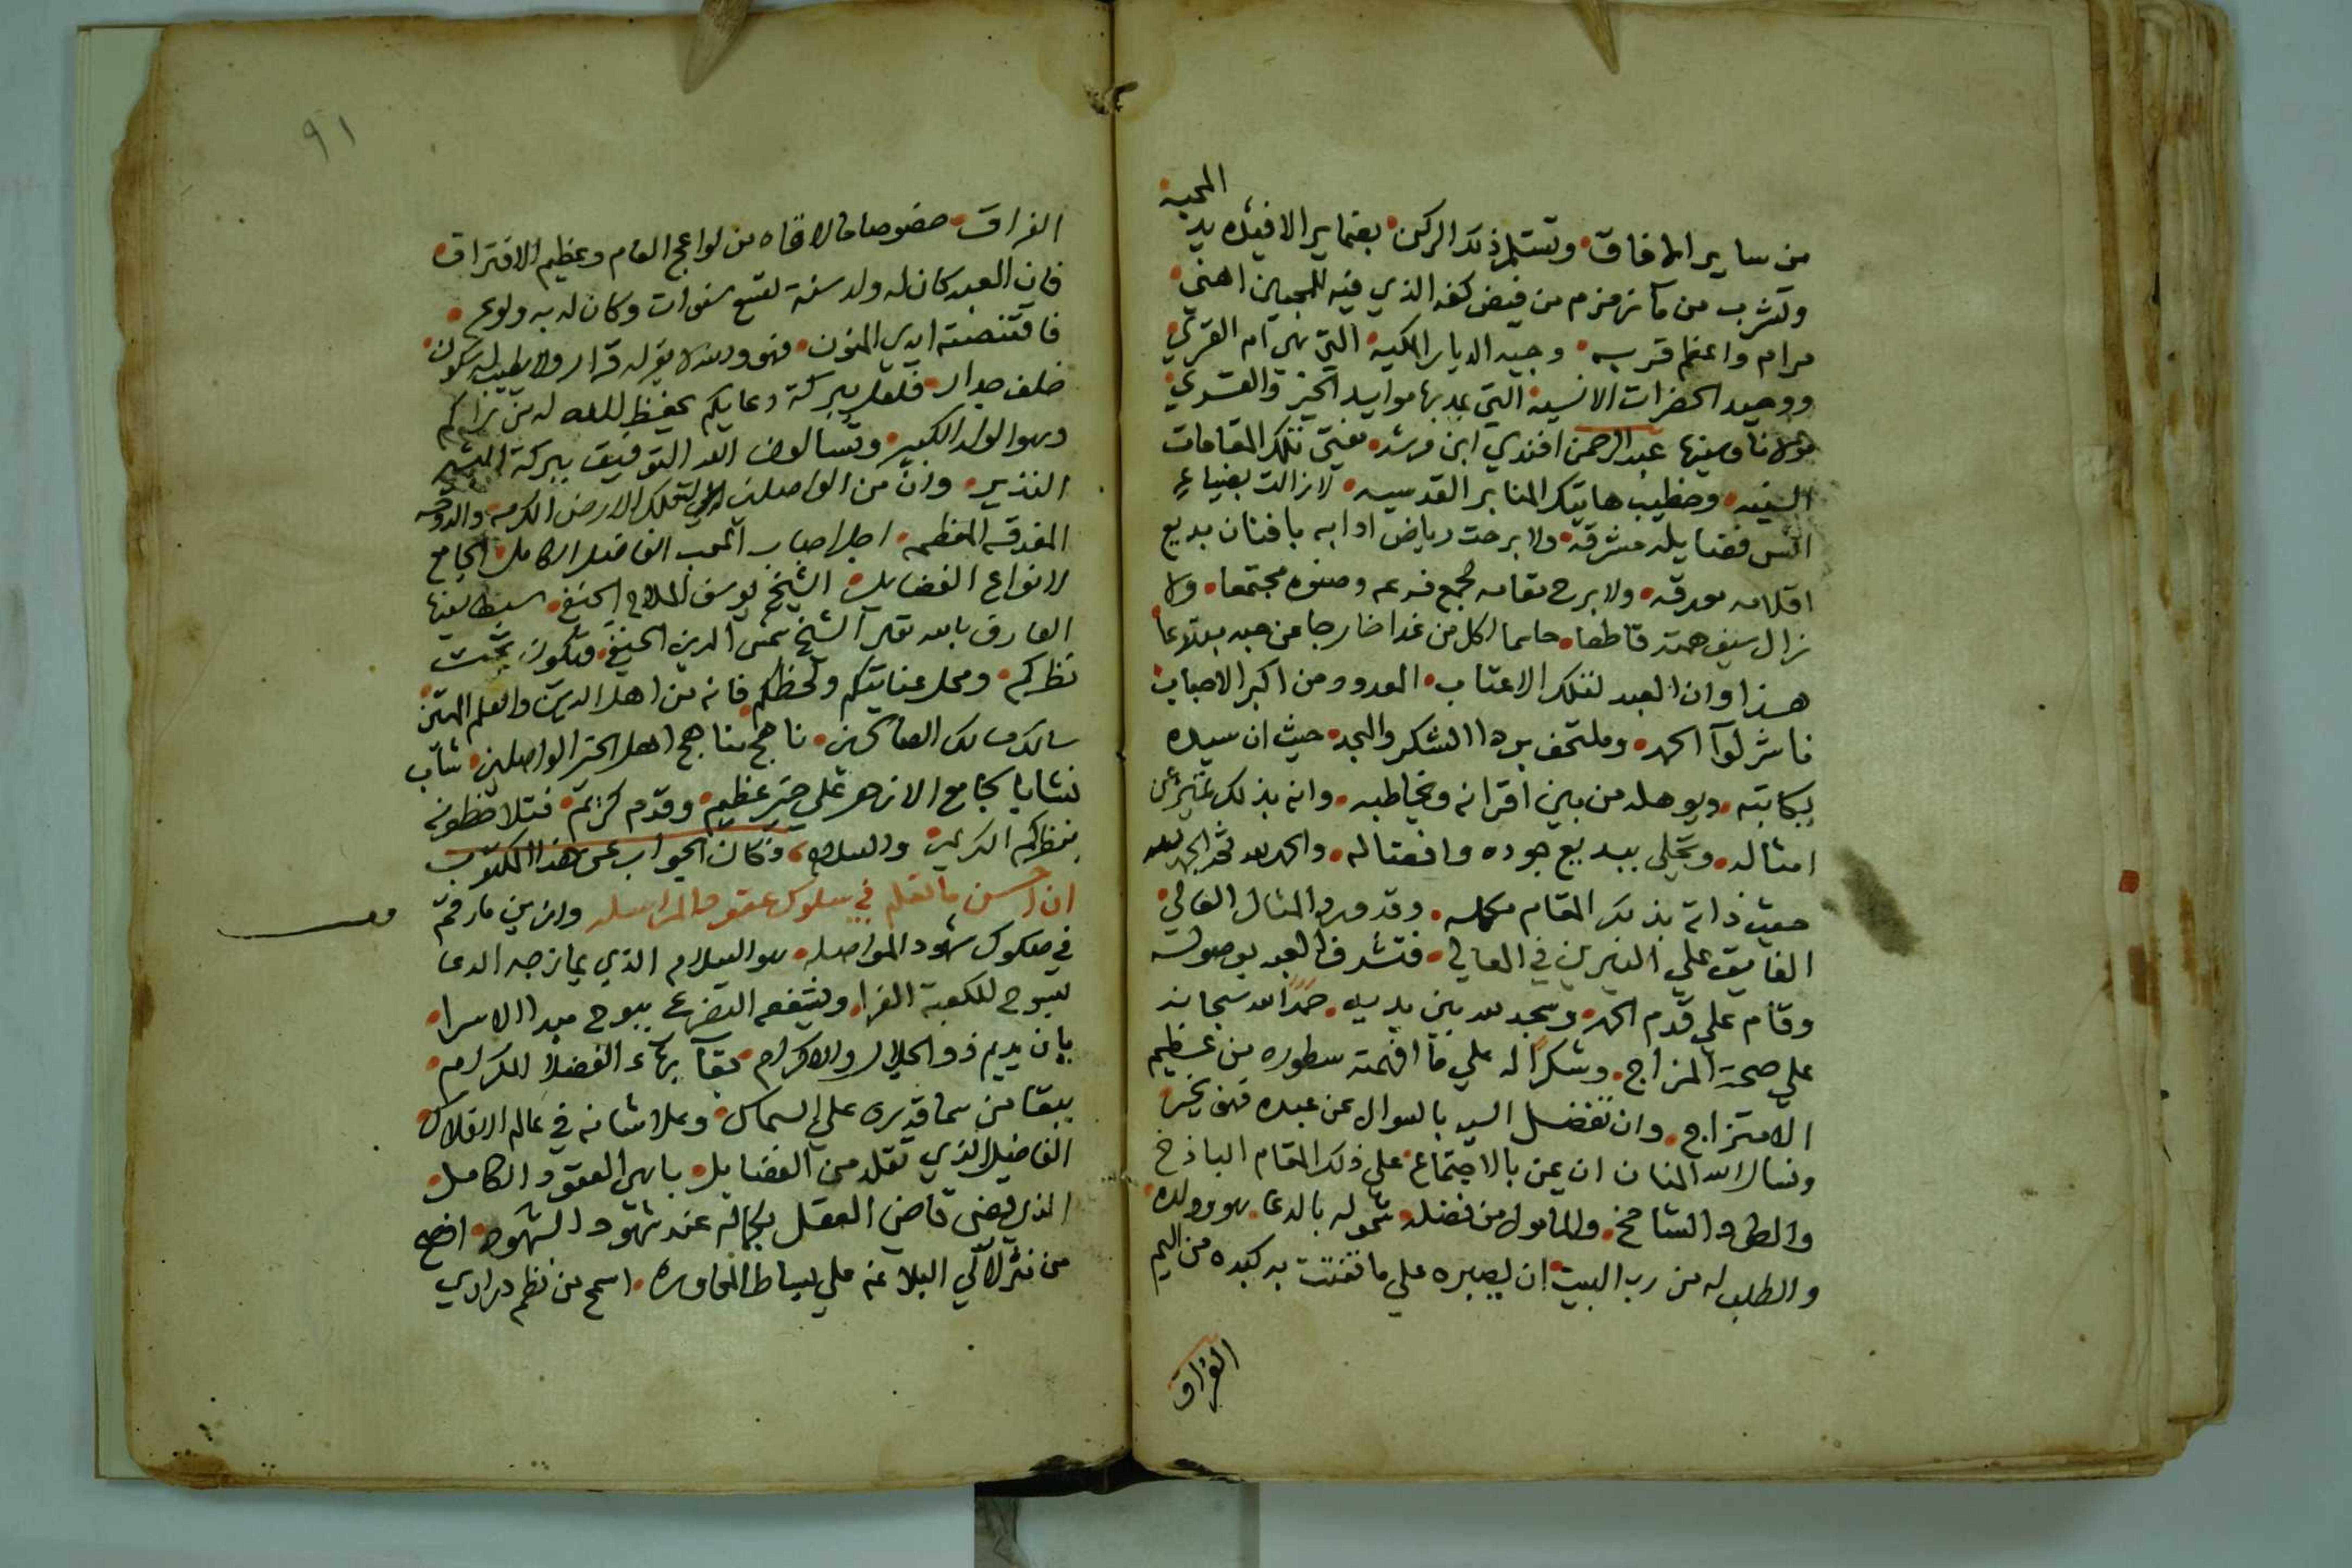 المحبة
من ساير الافاق وتستلم ذلك الركن بضماير الافيئده يد
وتشرب من ماء زمزم من فيض كفه الذي فيه للمحبين اهني
مرام واعظم قربه وجيه الديار المكيه التي هي ام القري
ووحيد الحضرات الانسيه التي يمد بها موايد الخير والقري
مولانا وسيدنا عبد الرحمن افندي ابن مرشد مفتي تلك المقامات
السنيه وخطيب هاتيك المنابر القدسيه لا زالت بضياء
شمس فضايله مشرقة ولا برحت رياض ادابه بافنان بديع
اقلامه مورقه ولا برح مقامه لجمع فرعه وصنوه مجتمعا ولا
زال سيف همته قاطعا حاسما لكل من غدا خارجا عن حبه مبتدعا
هذا وان العبد لتلك الاعتاب المعدود من اكبر الاحباب
ناشر لواء الحمد وملتحف بردا الشكر والمجد حيث ان سيده
يكاتبه ويوهله من بين اقرانه ويخاطبه وانه بذلك تميز عن
امثاله وتحلي ببديع جوده وافضاله والحمد لله ثم الحمد لله
حيث ذاته بذلك المقام مكمله وقد ورد المثال العالي
الفايق علي النيرين في المعالي فتشرف العبد بوصوله
وقام علي قدم الحمد وسجد لله بين يديه حمدا لله سبحانه
علي صحة المزاج وشكرا له علي ما افهمته سطوره من عظيم
الامتزاج وان تفضل السيد بالسوال عن عبده فهو بخير
ونسال الله المنان ان يمن بالاجتماع علي ذلك المقام الباذخ
والطود الشامخ والمامول من فضله شموله بالدعا هو وولده
والطلب له من رب البيت ان يصبره علي ما تفتت به كبده من اليم
الفراق
٩١
الفراق خصوصا ما لاقاه من لواعج الغرام وعظيم الافتراق
فان العبد كان له ولد سنه تسع سنوات وكان له به ولوع
فاقتنصته ايدي المنون فهو وبعده لا يقر له قرار ولا يطيب له سكون
خلف جدار فلعل ببركة دعايكم يحفظ الله له من يراكم
وهو الولد الكبير وتسالون الله التوفيق ببركة البشير
النذير وان من الواصلين الي تلك الارض المكرمه والدوحه
المغدقه المعظمه اجل احباب المحب الفاضل الكامل الجامع
لانواع الفضايل الشيخ يوسف الملاح الحنفي سبط سيدنا
العارف بالله تعالي الشيخ شمس الدين الحنفي فتكون تحت
نظركم ومحل عنايتكم ولحظكم فانه من اهل الدين والعلم المتين
سالك مسالك الصالحين ناهج مناهج اهل الخير الواصلين شاب
نشا بالجامع الازهر علي خير عظيم وقدم كريم فتلاحظونه
بنظركم الكريم والسلام وكان الجواب عن هذا المكتوب
ان احسن ما نظم في سلوك عقود المراسله وازين ما رقم
في صكوك شهود المواصله هو السلام الذي يمازجه الدعا
بسوح الكعبة الغرا ويشفعه التضرع ببوح مبدا الاسرا
بان يديم ذو الجلال والاكرام بقا بهاء الفضلا الكرام
ببقا من سما قدره علي السماك وعلا شانه في عالم الافلاك
الفاضل الذي تقلد من الفضايل باهي العقود الكامل
الذي قضي قاضي العقل بكماله عند شهود الشهود افصح
من نثر لآلي البلاغه علي بساط المحاوره اسمح من نظم دراري